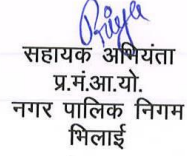 Priya
सहायक अभियंता
प्र.मं.आ.यो.
नगर पालिक निगम
भिलाई